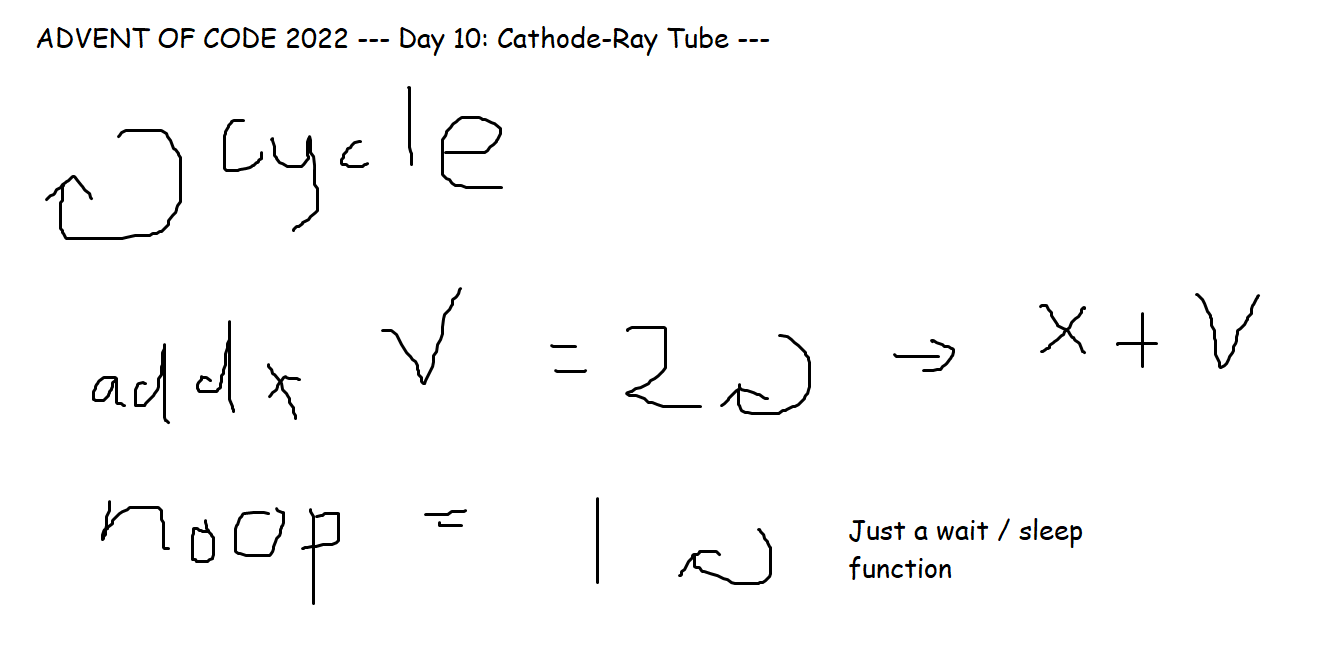 ADVENT OF CODE 2022 --- Day 10: Cathode-Ray Tube ---
cycle
addx V = 2 → x + V
noop = 1 Just a wait / sleep
function